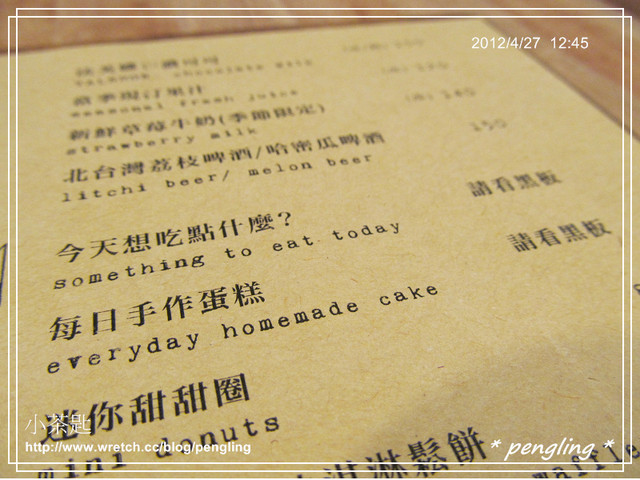 2012/4/27 12:45
當季現打果汁
seasonal fresh juice
新鮮草莓牛奶(季節限定) 140
strawberry milk
北台灣荔枝啤酒/哈密瓜啤酒 150
litchi beer/ melon beer
今天想吃點什麼? 請看黑板
something to eat today
每日手作蛋糕 請看黑板
everyday homemade cake
迷你甜甜圈
mini donuts
淇淋鬆餅
waffle
小茶匙
http://www.wretch.cc/blog/pengling
* pengling *